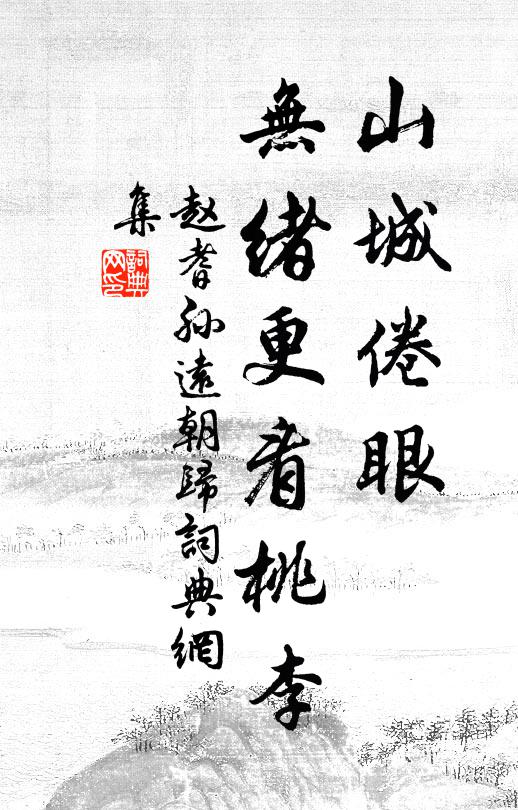 山城倦眼
無緒更看桃李
赵耆孙遠朝歸詞典網
集
詞典
网印